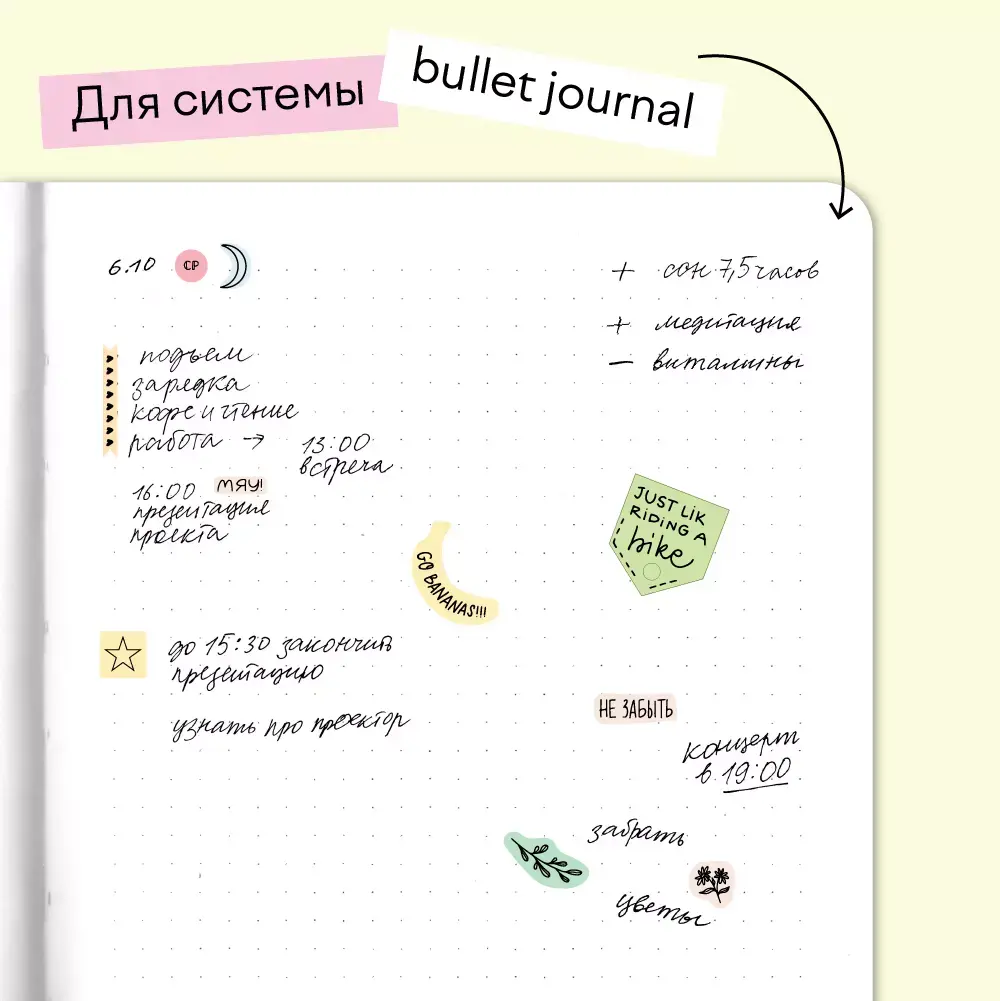 Для системы bullet journal
6.10 СР
+ сон 7,5 часов
+ медитация
– витамины
подъем
зарядка
кофе и чтение
работа → 13:00
встреча
16:00 МЯУ!
презентация
проекта
JUST LIK
RIDING A
bike
GO BANANAS!!!
до 15:30 закончить
презентацию
узнать про проектор
НЕ ЗАБЫТЬ
концерт
в 19:00
забрать
цветы